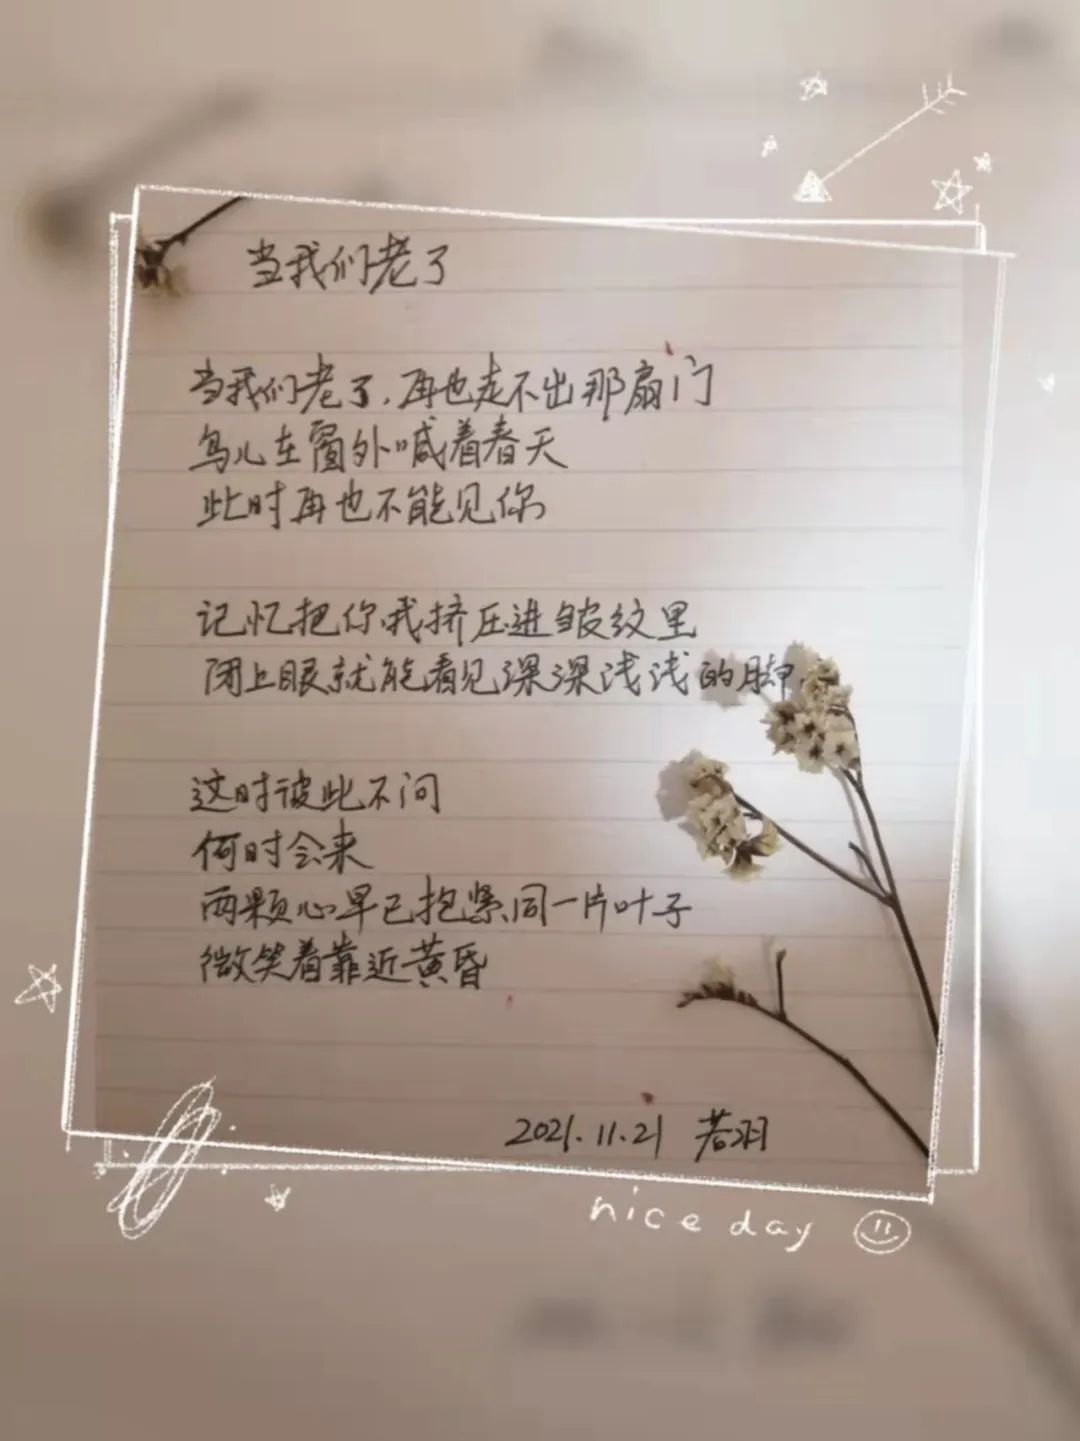 当我们老了
当我们老了,再也走不出那扇门
鸟儿在窗外喊着春天
此时再也不能见你
记忆把你我挤压进皱纹里
闭上眼就能看见深深浅浅的脚
这时彼此不问
何时会来
两颗心早已抱紧同一片叶子
微笑着靠近黄昏
2021.11.21 若羽
nice day